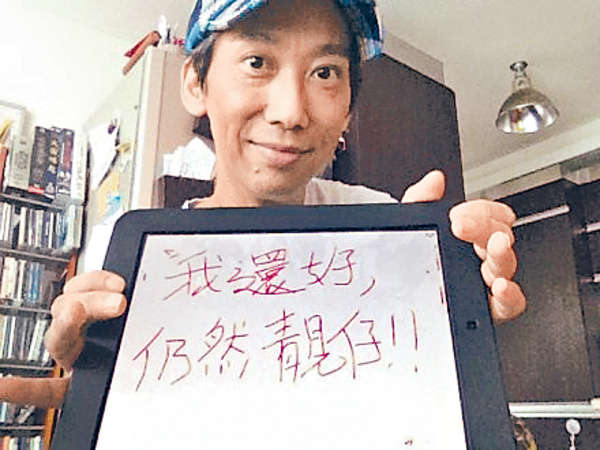 “我還好，
仍然靚仔!!